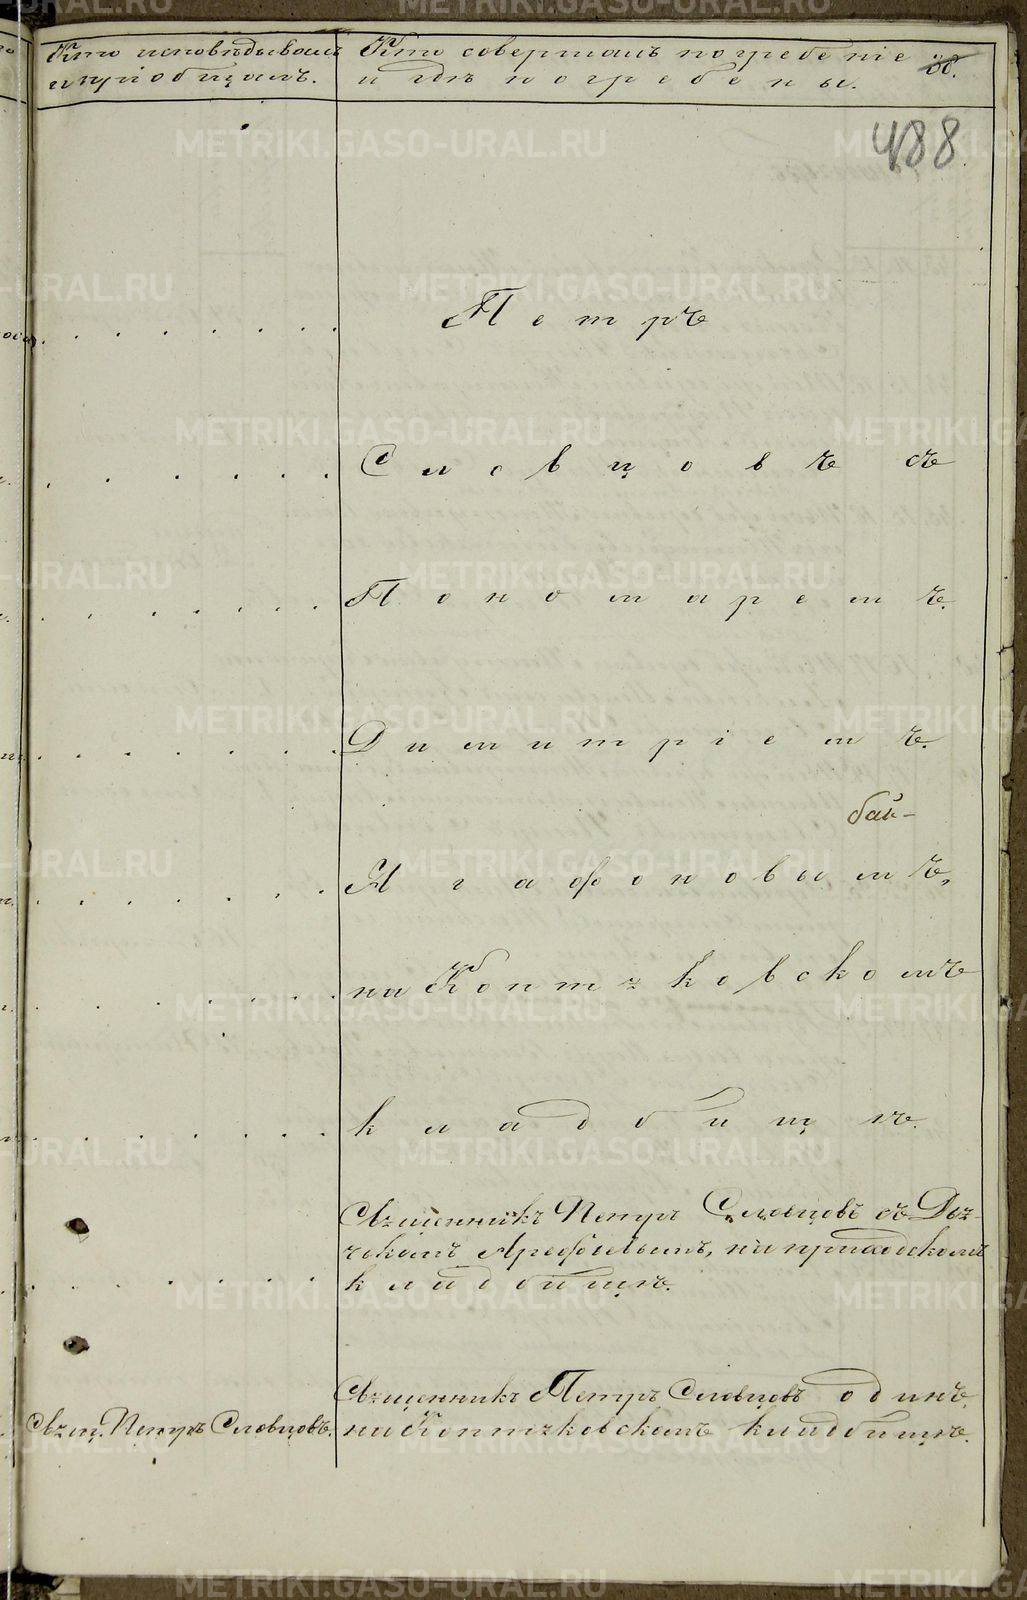 Кто исповѣдывалъ
и пріобщалъ.
Кто совершалъ погребеніе
и гдѣ погребены.
488
Петръ
Словцовъ съ
Пономаремъ.
Димитріемъ.
бай-
Агафоновымъ,
на Коптяковскомъ
кладбищѣ.
Священникъ Петръ Словцовъ съ Дья-
чкомъ Арефьевымъ, на приходскомъ
кладбищѣ.
Священникъ Петръ Словцовъ одинъ,
на Коптяковскомъ кладбищѣ.
Свящ. Петръ Словцовъ.
METRIKI.GASO-URAL.RU